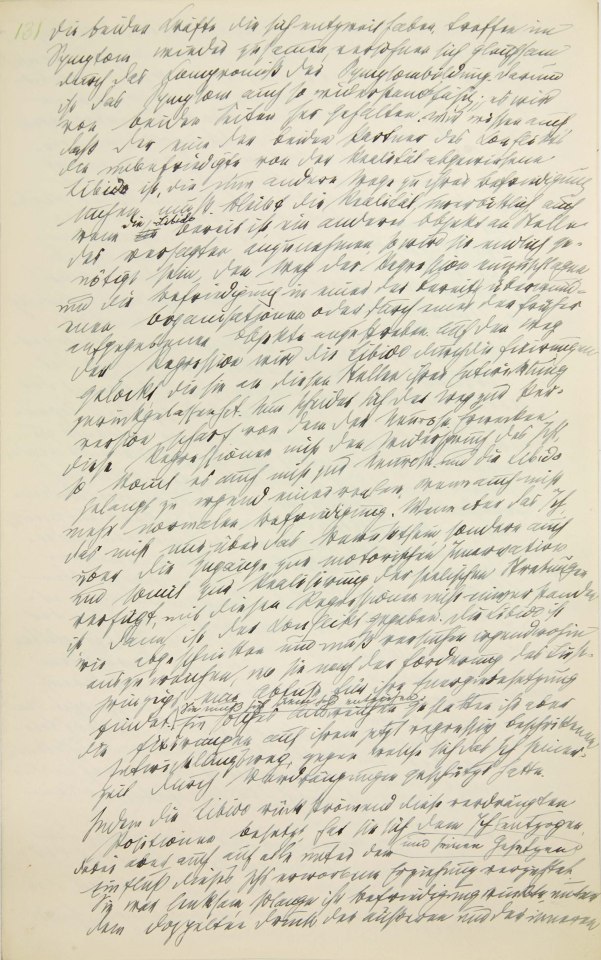 131 die beiden Kräfte die sich entzweit haben treffen im
Symptom wieder zusamen versöhnen sich gleichsam
durch das Kompromiß der Symptombildung. Darum
ist das Symptom auch so widerstandsfähig; es wird
von beiden Seiten her gehalten. Wir wissen auch
daß der eine der beiden Partner des Konflikts
die unbefriedigte von der Realität abgewiesene
Libido ist, die nun andere Wege zu ihrer Befriedigung
suchen muß. Bleibt die Realität unerbittlich auch
wenn die Libido bereit ist ein anderes Objekt an Stelle
des versagten anzunehmen so wird sie endlich ge-
nötigt sein, den Weg der Regression einzuschlagen
und die Befriedigung in einer der bereits überwunde-
nen Organisationen oder durch eines der früher
aufgegebenen Objekte anzustreben. Auf den Weg
der Regression wird die Libido durch die Fixirungen
gelockt die sie an diesen Stellen ihrer Entwicklung
zurückgelassen hat. Nun scheidet sich der Weg zur Per-
version scharf von dem der Neurose. Erwecken
diese Regressionen nicht den Widerspruch des Ichs,
so komt es auch nicht zur Neurose und die Libido
gelangt zu irgend einer realen, wenn auch nicht
mehr normalen Befriedigung. Wenn aber das Ich,
das nicht nur über das Bewußtsein sondern auch
über die Zugänge zur motorischen Innervation
und somit zur Realisirung der seelischen Strebungen
verfügt, mit diesen Regressionen nicht einverstanden
ist, dann ist der Konflikt gegeben. Die Libido ist
wie abgeschnitten und muß versuchen irgendwohin
auszuweichen, wo sie nach der Forderung des Lust-
prinzips einen Abfluß für ihre Energiebesetzung
findet. Sie muß sich dem Ich entziehen.
Ein solches Ausweichen gestatten ihr aber
die Fixirungen auf ihrem jetzt regressiv beschrittenen
Entwicklungsweg, gegen welche sich das Ich seiner-
zeit durch Verdrängungen geschützt hatte.
Indem die Libido rückströmend diese verdrängten
Positionen besetzt hat sie sich dem Ich entzogen,
und seinen Gesetzen
dabei aber auch auf alle unter dem
Einfluß dieses Ichs erworbene Erziehung verzichtet.
Sie war lenksam solange ihr Befriedigung winkte; unter
dem doppelten Druck der äußeren und der inneren